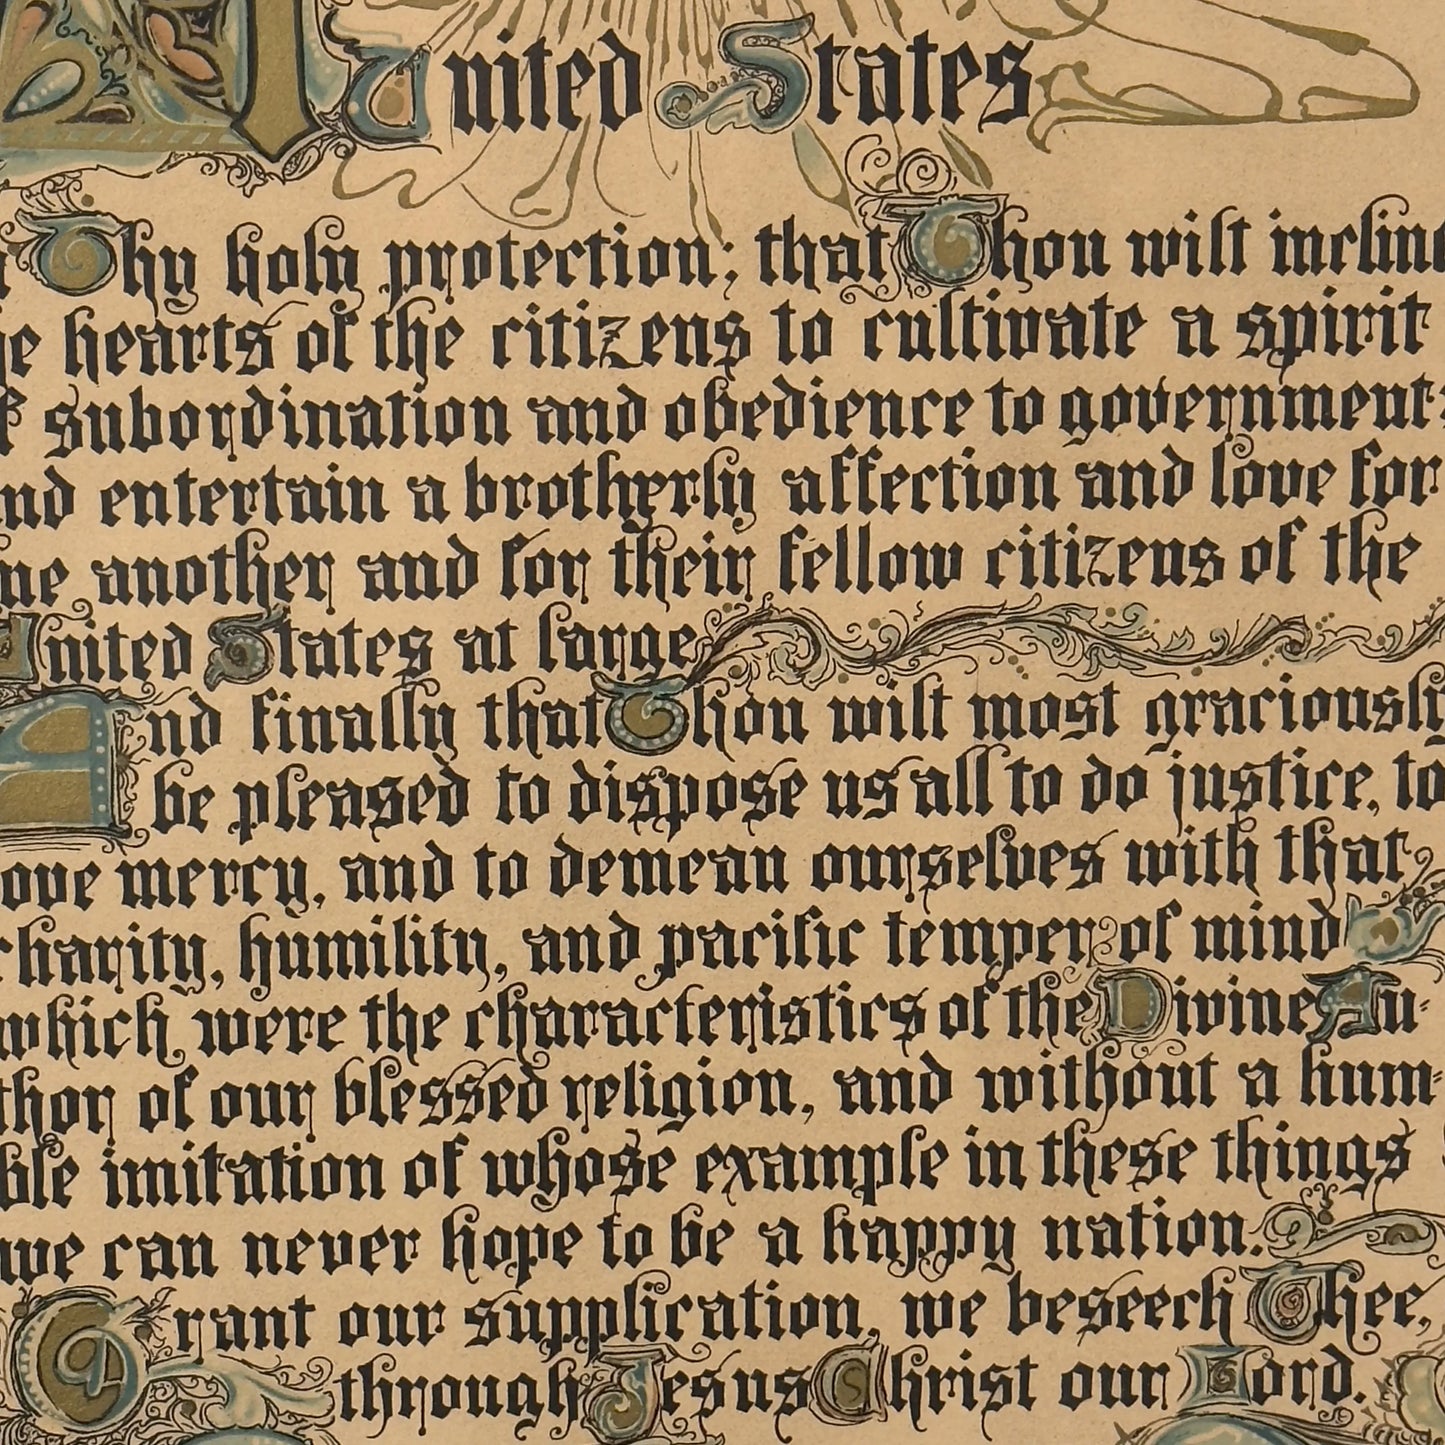 United States
Thy holy protection; that Thou wilt incline
he hearts of the citizens to cultivate a spirit
f subordination and obedience to government:
and entertain a brotherly affection and love for
ne another and for their fellow citizens of the
United States at large
And finally that Thou wilt most graciously
be pleased to dispose us all to do justice, to
ove mercy, and to demean ourselves with that
charity, humility, and pacific temper of mind
which were the characteristics of the Divine Au-
thor of our blessed religion, and without a hum-
ble imitation of whose example in these things
we can never hope to be a happy nation.
Grant our supplication, we beseech Thee,
through Jesus Christ our Lord.